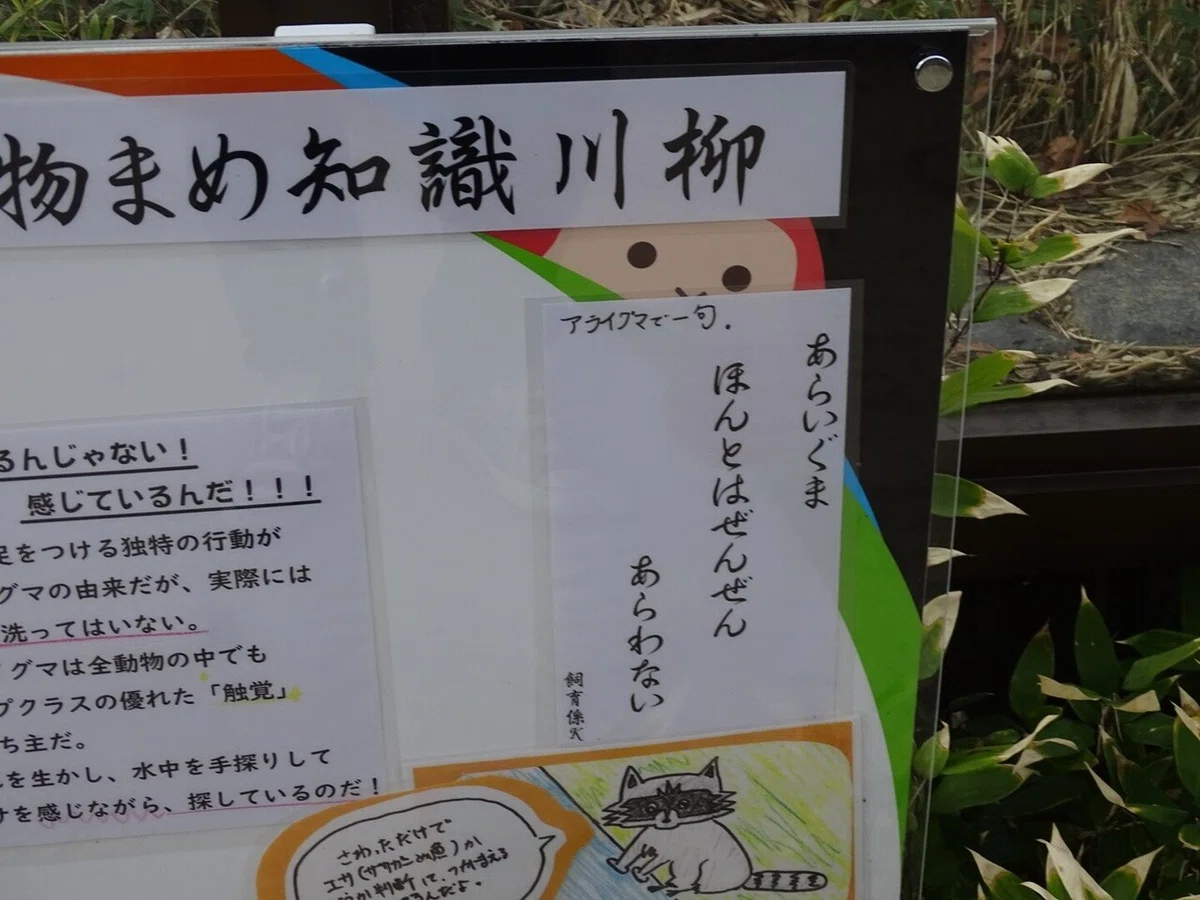 物まめ知識川柳
アライグマで一句.
あらいぐま
ほんとはぜんぜん
あらわない
飼育係K
るんじゃない！
感じているんだ！！！
足をつける独特の行動が
グマの由来だが、実際には
洗ってはいない。
グマは全動物の中でも
プクラスの優れた「触覚」
ち主だ。
を生かし、水中を手探りして
けを感じながら、探しているのだ！
さわっただけで
エサ(ザリガニや魚)か
判断して、つかまえる
るんだよ。